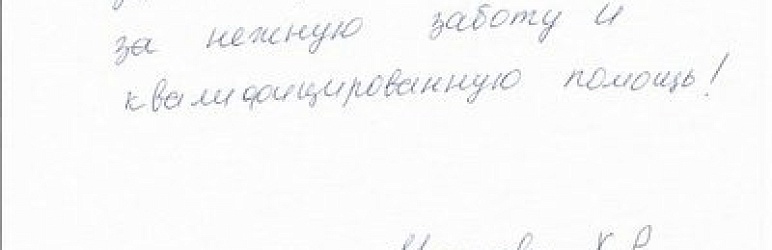 за нежную заботу и
квалифицированную помощь!